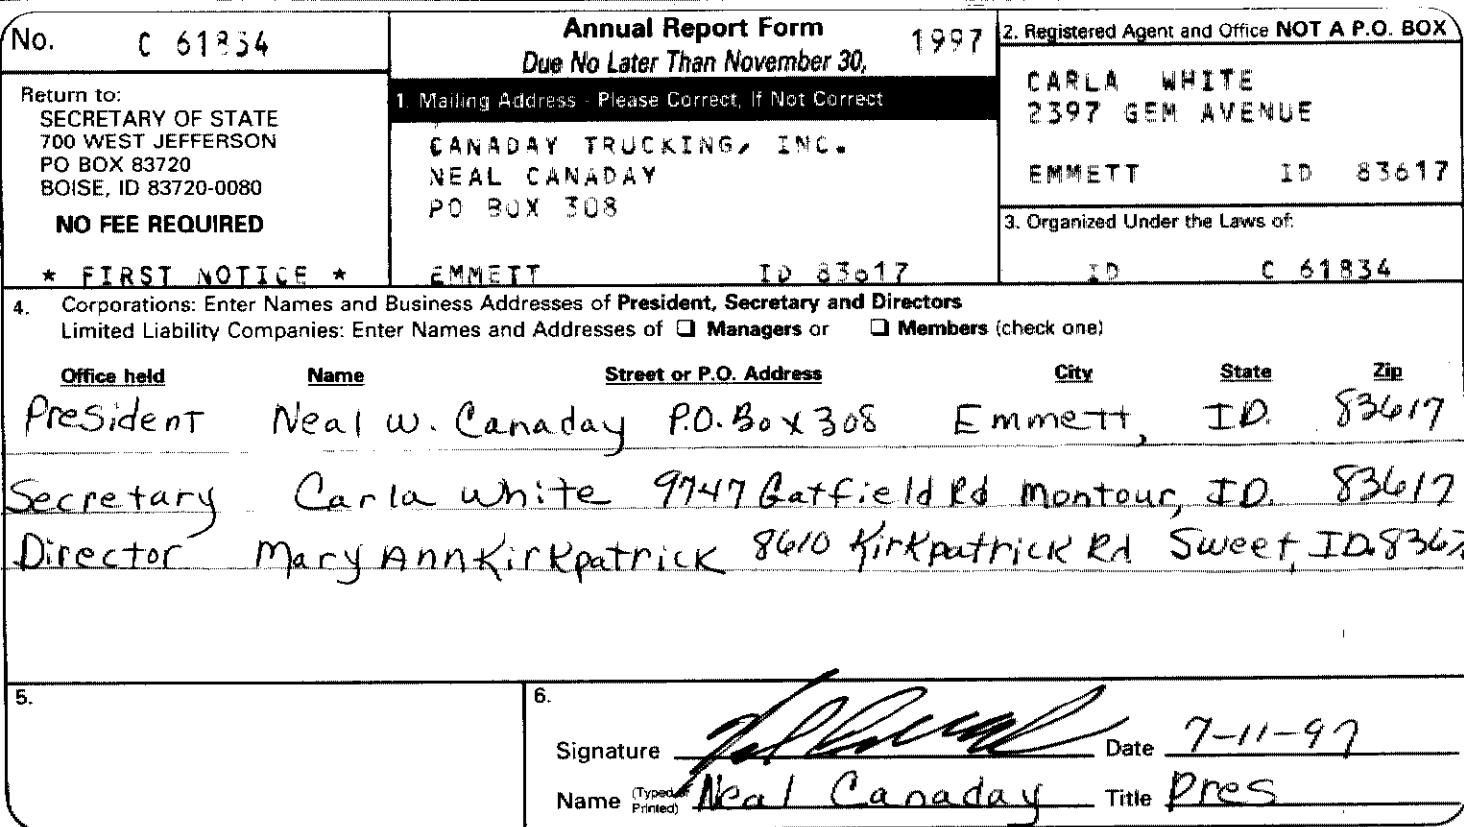 No. C 61834
Annual Report Form 1997
Due No Later Than November 30,
Return to:
SECRETARY OF STATE
700 WEST JEFFERSON
PO BOX 83720
BOISE, ID 83720-0080
NO FEE REQUIRED
* FIRST NOTICE *
1. Mailing Address - Please Correct, If Not Correct
CANADAY TRUCKING, INC.
NEAL CANADAY
PO BOX 308
EMMETT ID 83617
2. Registered Agent and Office NOT A P.O. BOX
CARLA WHITE
2397 GEM AVENUE
EMMETT ID 83617
3. Organized Under the Laws of:
ID C 61834
4. Corporations: Enter Names and Business Addresses of President, Secretary and Directors
Limited Liability Companies: Enter Names and Addresses of ❑ Managers or ❑ Members (check one)
Office held Name Street or P.O. Address City State Zip
President Neal W. Canaday P.O. Box 308 Emmett, ID. 83617
Secretary Carla White 9747 Gatfield Rd Montour, ID. 83617
Director Mary Ann Kirkpatrick 8610 Kirkpatrick Rd Sweet, ID.
5.
6.
Signature Date 7-11-97
Name (Typed or Printed) Neal Canaday Title Pres